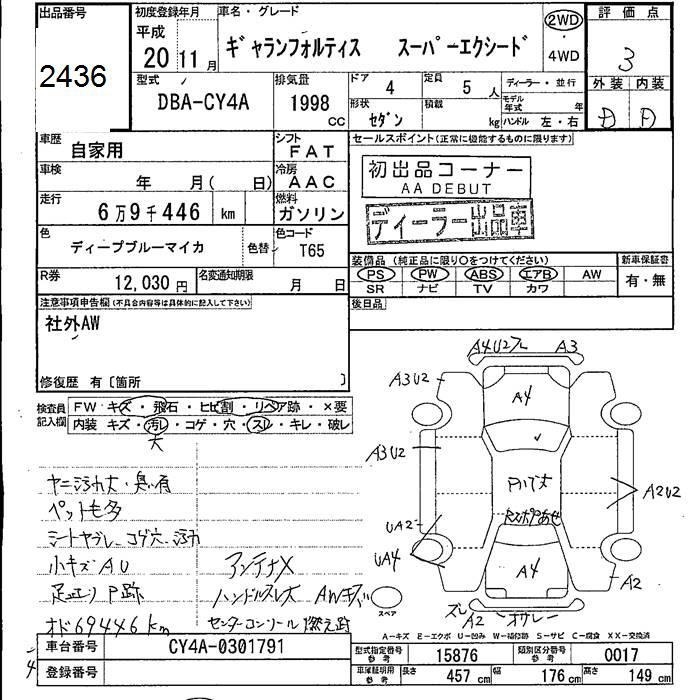 出品番号
2436
初度登録年月
平成
20年11月
車名・グレード
ギャランフォルティス スーパーエクシード
2WD
・
4WD
評価点
3
外装 内装
D D
型式
DBA-CY4A
排気量
1998
CC
ドア
4
定員
5人
形状
セダン
積載
kg
ディーラー・並行
モデル年式 年
ハンドル 左・右
車歴
自家用
シフト
FAT
車検
年 月( 日)
冷房
AAC
走行
6万9千446 km
燃料
ガソリン
色
ディープブルーマイカ
色替
色コード
T65
R券
12,030円
名変通知期限
月 日
セールスポイント(正常に機能するものに限ります)
初出品コーナー
AA DEBUT
ディーラー出品車
装備品 (純正品に限り○をつけてください)
PS PW ABS エアB AW
SR ナビ TV カワ
新車保証書
有・無
後日品
注意事項申告欄(不具合内容等は具体的に記入して下さい)
社外AW
修復歴 有〔箇所 〕
検査員記入欄
FW キズ・飛石・ヒビ割・リペア跡・×要
内装 キズ・汚レ・コゲ・穴・スレ・キレ・破レ
大
ヤニ汚れ大・臭い有
ペット毛多
シートヤブレ コゲ穴 汚れ
小キズAU
アンテナX
足廻りP跡
ハンドルスレ大 AWキズ
オド69446km
センターコンソール燃え跡
スペア
A4U2フレ A3
A3U2
A4
A3U2
A2U2
UA2
UA4
A4
A2
ズレ
A2
A-キズ E-エクボ U-凹み W-補修跡 S-サビ C-腐食 XX-交換済
車台番号
CY4A-0301791
登録番号
型式指定番号
参考
15876
類別区分番号
参考
0017
車庫証明用
参考
長さ
457 cm
幅
176 cm
高さ
149 cm